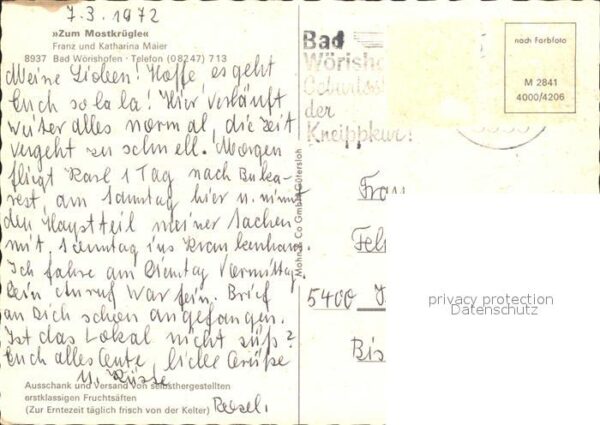 7.3.1972
»Zum Mostkrügle«
Franz und Katharina Maier
8937 Bad Wörishofen · Telefon (08247) 713
Meine Lieben! Hoffe, es geht
Euch so la la! Hier verläuft
weiter alles normal, die Zeit
vergeht zu schnell. Morgen
fliegt Karl 1 Tag nach Buka-
rest, am Samstag hier u. nimmt
den Hauptteil meiner Sachen
mit, Sonntag ins Krankenhaus.
Ich fahre am Dienstag Vormittag.
Dein Anruf war fein. Brief
an Dich schon angefangen.
Ist das Lokal nicht süß?
Euch alles Gute, liebe Grüße
u. Küsse
Resel.
Ausschank und Versand von selbsthergestellten
erstklassigen Fruchtsäften
(Zur Erntezeit täglich frisch von der Kelter)
Mohn & Co GmbH Gütersloh
Bad
Wörisho
Geburts
der
Kneippkur!
nach Farbfoto
M 2841
4000/4206
Frau
Fel
5400
Bis
privacy protection
Datenschutz